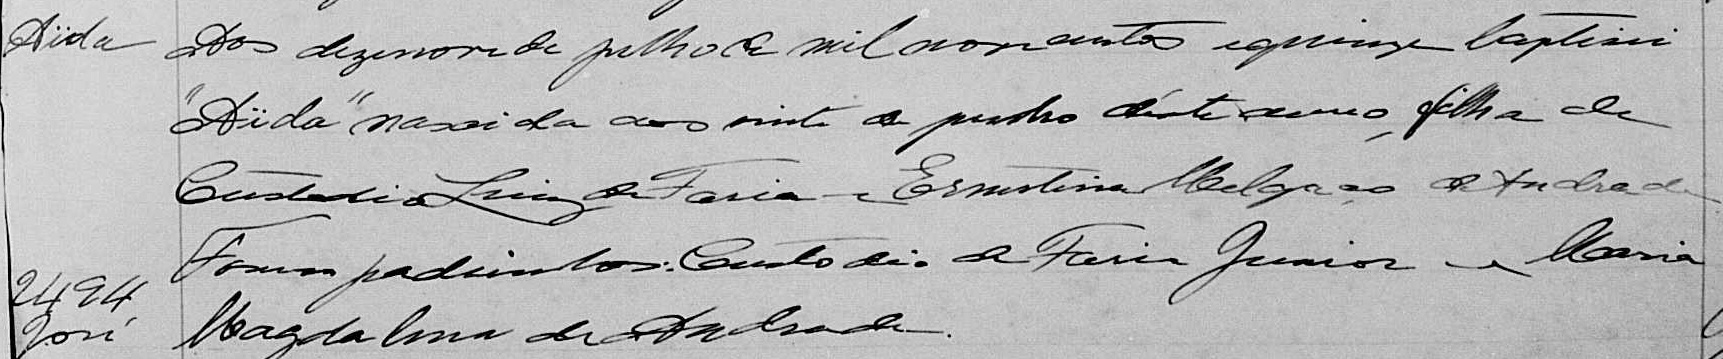 Aïda Aos dezenove de julho de mil novecentos e quinze baptisei
"Aïda" nascida aos vinte de junho d'este anno, filha de
Custodio Luiz de Faria e Ernestina Melgaço de Andrade
Foram padrinhos: Custodio de Faria Junior e Maria
2494
José Magdalena de Andrade.